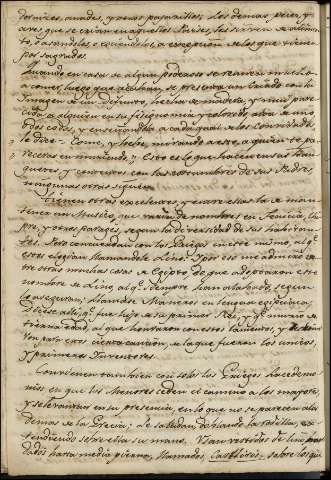 dornices, anades, y otros pajarillos; los demas, peces, y
aves, que se crian en aquellos Paises, les sirven de alimen-
to, o asandolos, o cociendolos, a excepcion de los que tienen
por sagrados.
Quando en casa de algun poderoso se reunen muchos
a comer, luego que acaban, se presenta un Criado con la
Imagen de un difunto, hecha de madera, y muy pare-
cida a alguien en su fisognomia y colorido, alta de uno
o dos codos, y enseñandola a cada qual de los Convidados,
le dice = Come, y bebe, mirando a este, a quien te pa-
receras en muriendo. Esto es lo que hacen en sus ban-
quetes y convites con las costumbres de sus Padres,
ningunas otras siguen.
Tienen otras excelentes, y entre ellas la de man-
tener un Musico, que varia de nombres en Fenicia, Chi-
pre, y otros parages, segun la diversidad de sus habitan-
tes. Pero concuerdan con los Griegos en este mismo, al qe.
estos elogian llamandole Lino. Y por eso me admiro en-
tre otras muchas cosas de Egipto de que adoptaron este
nombre de Lino, al qe. siempre han alabado, segun
lo aseguran, llamase Maneros en lengua egipciana.
Dicese de el, qe. fue hijo de su primer Rey, y qe. murio de
tierna edad, al que honraron con estos lamentos, y
por otra cierta cancion, de la que fueron los unicos,
y primeros Inventores.
Convienen tambien con solos los Griegos Lacedemo-
nios en que los Menores ceden el camino a los mayores,
y se levantan en su presencia, en lo que no se parecen a los
demas de la Grecia. Se saludan, doblando la rodilla, ex-
tendiendo sobre ella su mano. Usan vestidos de lino, ro-
dados hasta media pierna, llamados, Casiliros; sobre los que